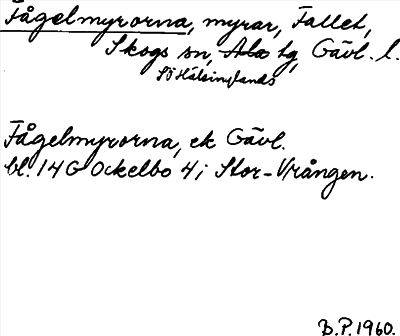 Fågelmyrorna, myrar, Fallet,
Skogs sn, Ala tg, Gävl. l.
SöHälsinglands
Fågelmyrorna, ek Gävl.
bl. 14G Ockelbo 4i Stor-Vrången.
B.P. 1960.